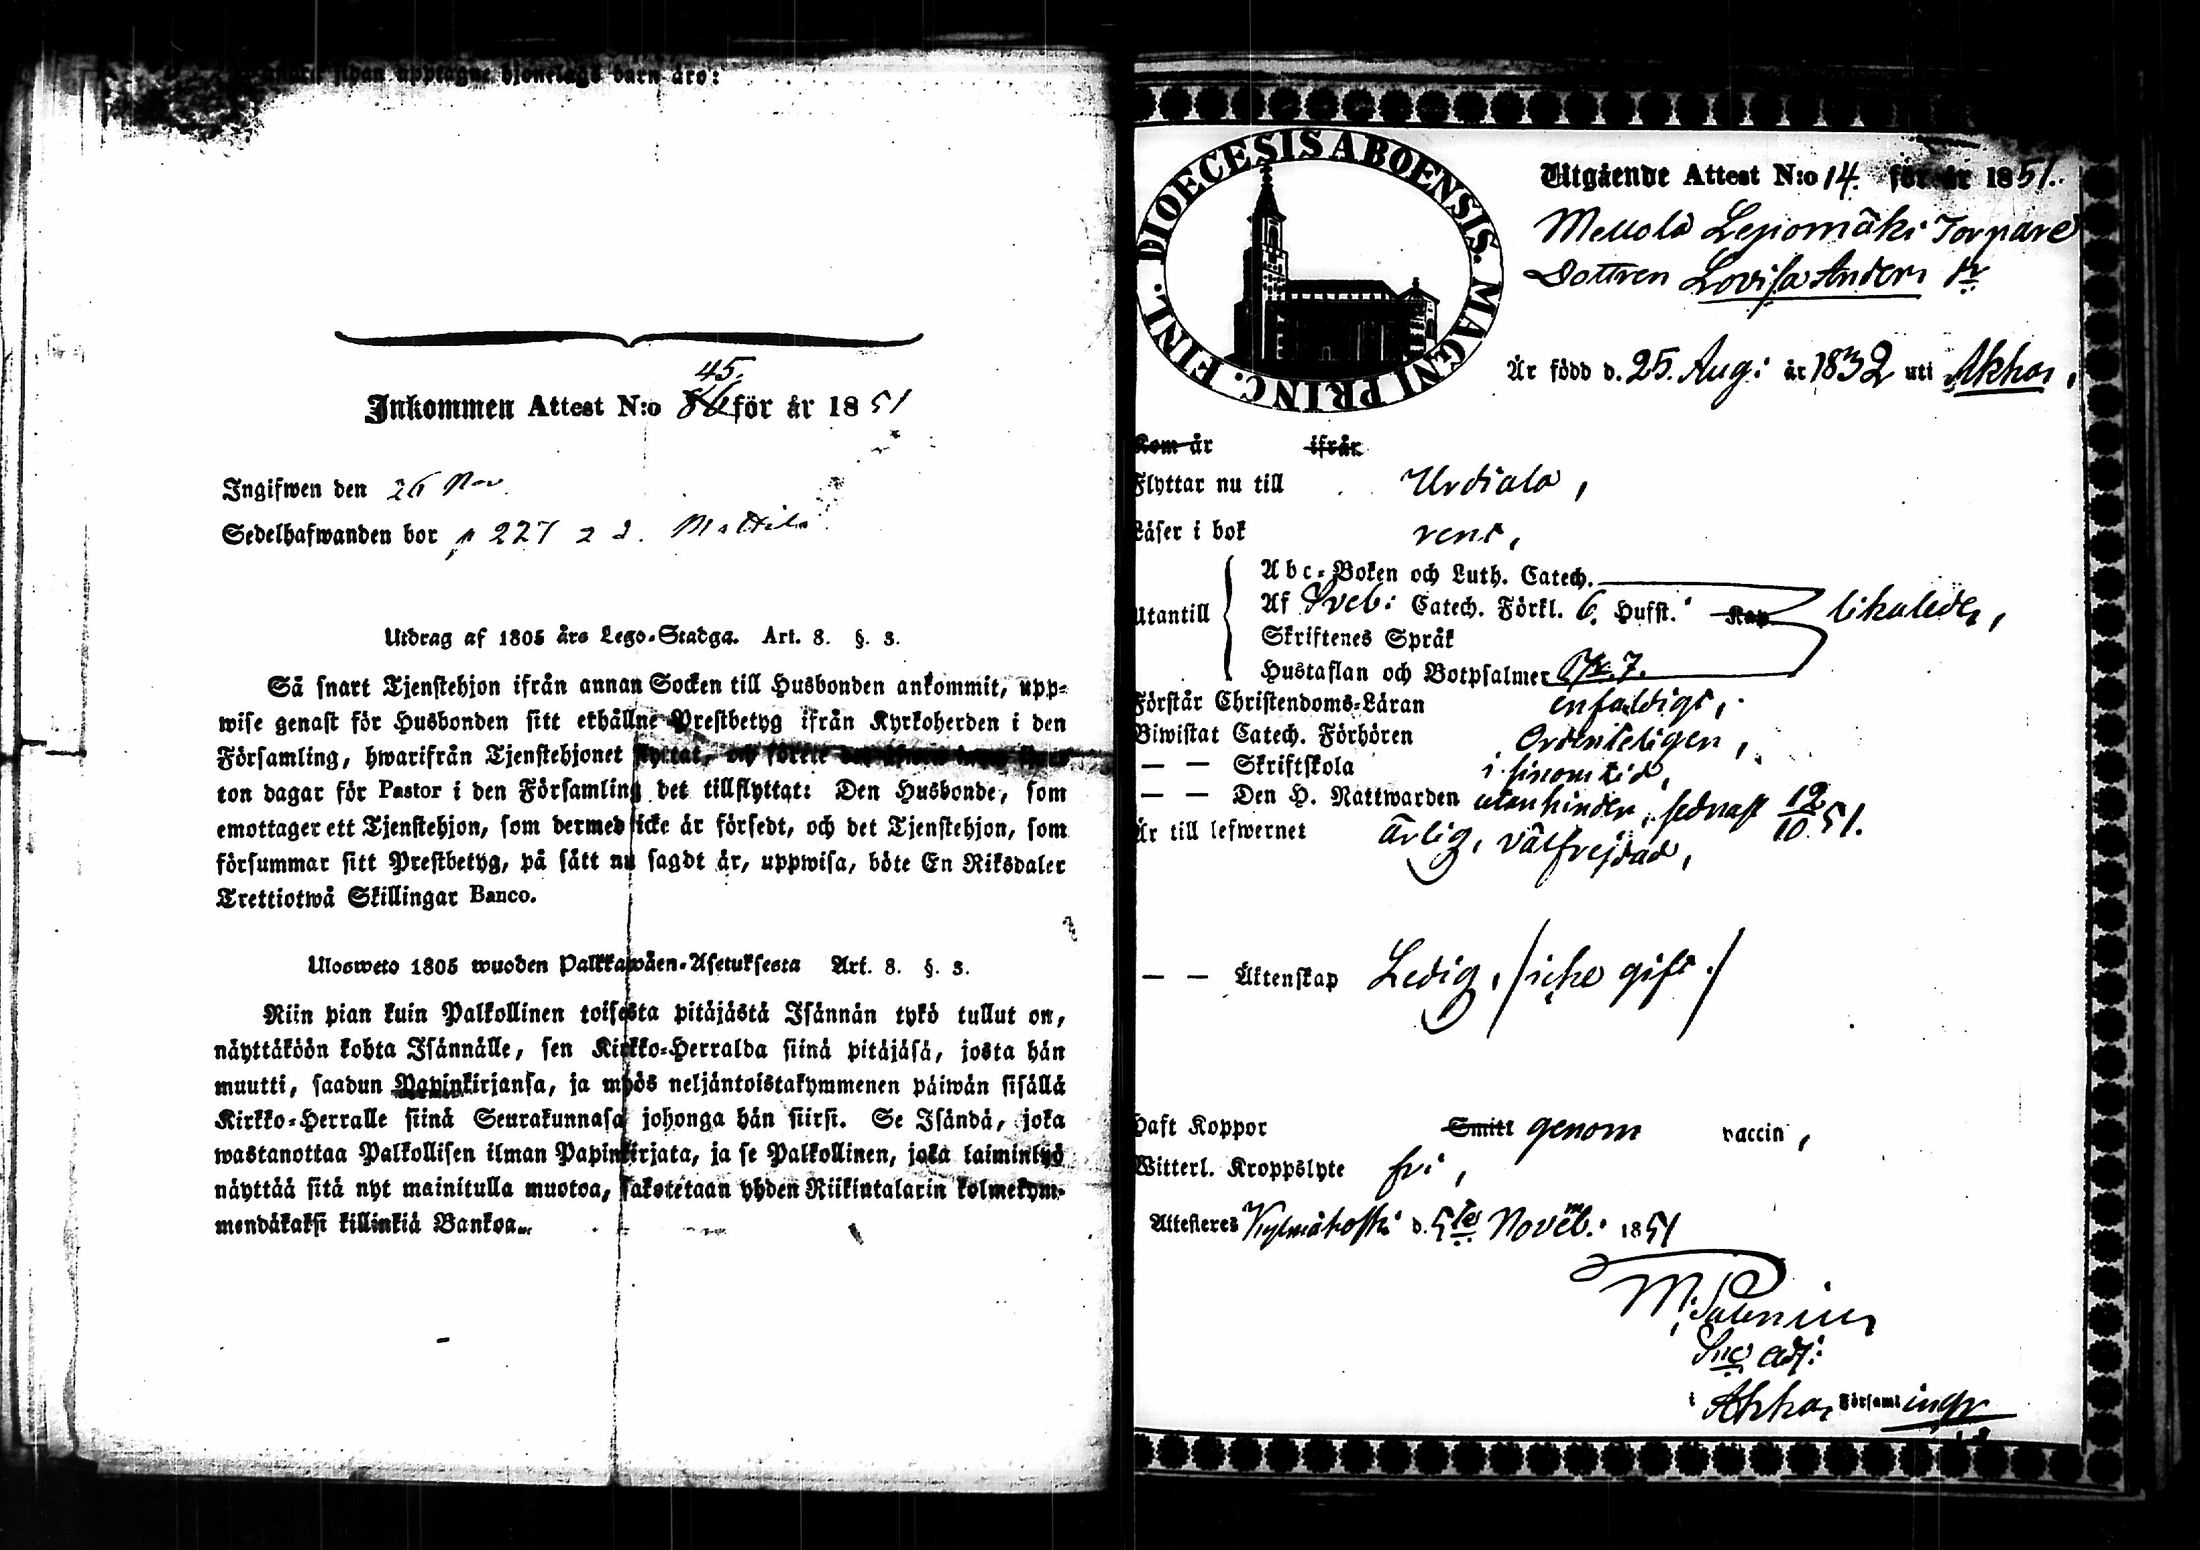 sidan upptagne hjonelags barn äro:
Inkommen Attest N:o 45. för år 1851
Ingifwen den 26 Nov
Sedelhafwanden bor p 227 Mattila
Utdrag af 1805 års Lego-Stadga. Art. 8. §. 3.
Så snart Tjenstehjon ifrån annan Socken till Husbonden ankommit, upp-
wise genast för Husbonden sitt erhållne Prestbetyg ifrån Kyrkoherden i den
Församling, hwarifrån Tjenstehjonet flyttat, och förete
ton dagar för Pastor i den Församling det tillflyttat: Den Husbonde, som
emottager ett Tjenstehjon, som dermed icke är försedt, och det Tjenstehjon, som
försummar sitt Prestbetyg, på sätt nu sagdt är, uppwisa, böte En Riksdaler
Trettiotwå Skillingar Banco.
Ulosweto 1805 wuoden Palkkawäen-Asetuksesta Art. 8. §. 3.
Niin pian kuin Palkollinen toisesta pitäjästä Isännän tykö tullut on,
näyttäköön kohta Isännälle, sen Kirkko-Herralda siinä pitäjäsä, josta hän
muutti, saadun Papinkirjansa, ja myös neljäntoistakymmenen päiwän sisällä
Kirkko-Herralle siinä Seurakunnasa johonga hän siirsi. Se Isändä, joka
wastanottaa Palkollisen ilman Papinkirjata, ja se Palkollinen, joka laiminlyö
näyttää sitä nyt mainitulla muotoa, sakotetaan yhden Riikintalarin kolmekym-
mendäkaksi killinkiä Bankoa.
DIOECESIS ABOENSIS. MAGNI PRINC. FINL.
Utgående Attest N:o 14. för år 1851.
Mellola Lepiomäki Torpare
Dottren Lovisa Anders dr
Är född d. 25. Aug: år 1832 uti Akkas,
Kom år ifrån
Flyttar nu till Urdiala,
Läser i bok rent,
Utantill
Abc-Boken och Luth. Catech.
Af Sveb: Catech. Förkl. 6. Hufst. Kap likaledes,
Skriftenes Språk
Hustaflan och Botpsalmer 7.
Förstår Christendoms-Läran enfaldigt,
Biwistat Catech. Förhören Ordenteligen,
— — Skriftskola i sinom tid,
— — Den H. Nattwarden utan hinder, sednast 19/10 51.
Är till lefwernet ärlig, välfrejdad,
— — Äktenskap Ledig, /icke gift./
Haft Koppor Smitt genom vaccin,
Witterl. Kroppslyte fri,
Attesteras Kylmäkoski d. 5te Novemb: 1851
M. Salenius
Sac adj:
i Akkas Församlings